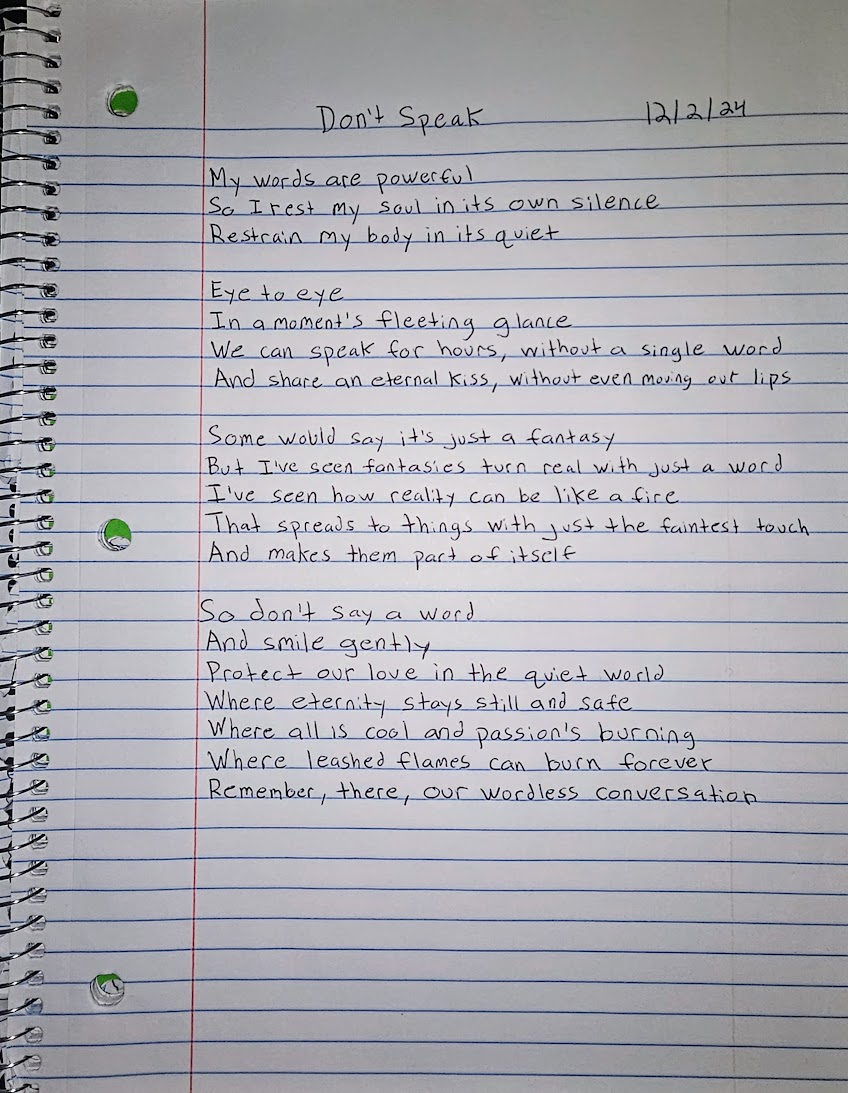 Don't Speak 12/2/24
My words are powerful
So I rest my soul in its own silence
Restrain my body in its quiet
Eye to eye
In a moment's fleeting glance
We can speak for hours, without a single word
And share an eternal kiss, without even moving our lips
Some would say it's just a fantasy
But I've seen fantasies turn real with just a word
I've seen how reality can be like a fire
That spreads to things with just the faintest touch
And makes them part of itself
So don't say a word
And smile gently
Protect our love in the quiet world
Where eternity stays still and safe
Where all is cool and passion's burning
Where leashed flames can burn forever
Remember, there, our wordless conversation